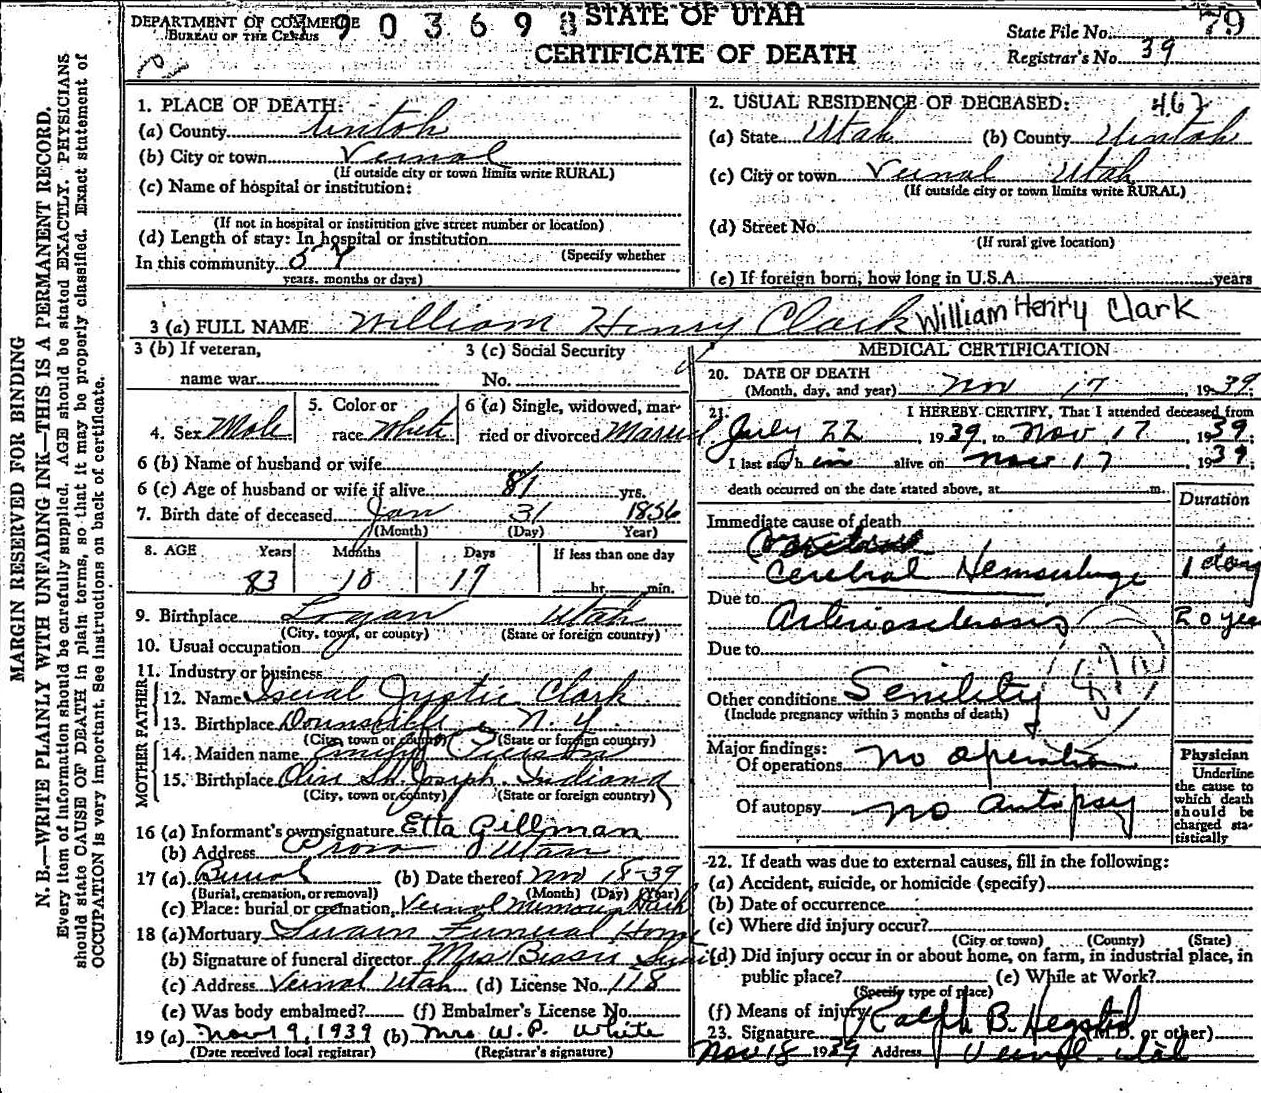 DEPARTMENT OF COMMERCE
BUREAU OF THE CENSUS
3903698
STATE OF UTAH
CERTIFICATE OF DEATH
State File No. 79
Registrar's No. 39
MARGIN RESERVED FOR BINDING
N. B.—WRITE PLAINLY WITH UNFADING INK—THIS IS A PERMANENT RECORD.
Every item of information should be carefully supplied. AGE should be stated EXACTLY. PHYSICIANS
should state CAUSE OF DEATH in plain terms, so that it may be properly classified. Exact statement of
OCCUPATION is very important. See instructions on back of certificate.
1. PLACE OF DEATH:
(a) County Uintah
(b) City or town Vernal
(If outside city or town limits write RURAL)
(c) Name of hospital or institution:
(If not in hospital or institution give street number or location)
(d) Length of stay: In hospital or institution
(Specify whether
In this community 57
years, months or days)
2. USUAL RESIDENCE OF DECEASED: 467
(a) State Utah (b) County Uintah
(c) City or town Vernal Utah
(If outside city or town limits write RURAL)
(d) Street No.
(If rural give location)
(e) If foreign born, how long in U.S.A. years
3 (a) FULL NAME William Henry Clark William Henry Clark
3 (b) If veteran,
name war
3 (c) Social Security
No.
4. Sex Male
5. Color or
race White
6 (a) Single, widowed, mar-
ried or divorced Married
6 (b) Name of husband or wife
6 (c) Age of husband or wife if alive 81 yrs.
7. Birth date of deceased Jan 31 1856
(Month) (Day) Year)
8. AGE Years Months Days If less than one day
83 10 17 hr. min.
9. Birthplace Logan Utah
(City, town, or county) (State or foreign country)
10. Usual occupation
11. Industry or business
FATHER
12. Name Iseral Justic Clark
13. Birthplace N. Y.
(City, town or county) (State or foreign country)
MOTHER
14. Maiden name
15. Birthplace St. Joseph Indiana
(City, town or county) (State or foreign country)
16 (a) Informant's own signature Etta Gillman
(b) Address Provo Utah
17 (a) Burial (b) Date thereof Nov 18-39
(Burial, cremation, or removal) (Month) (Day) (Year)
(c) Place: burial or cremation Vernal Memorial Park
18 (a) Mortuary Swain Funeral Home
(b) Signature of funeral director Mrs
(c) Address Vernal Utah (d) License No. 118
(e) Was body embalmed? (f) Embalmer's License No.
19 (a) Nov 19, 1939 (b) Mrs W. P. White
(Date received local registrar) (Registrar's signature)
MEDICAL CERTIFICATION
20. DATE OF DEATH
(Month, day, and year) Nov 17 1939
21. I HEREBY CERTIFY, That I attended deceased from
July 22, 1939, to Nov 17, 1939;
I last saw him alive on Nov 17, 1939;
death occurred on the date stated above, at m.
Duration
Immediate cause of death
Cerebral Hemorrhage 1 day
Due to
Arteriosclerosis 20 yea
Due to
Other conditions Senility
(Include pregnancy within 3 months of death)
Major findings:
Of operations no operation
Of autopsy no autopsy
Physician
Underline
the cause to
which death
should be
charged sta-
tistically
22. If death was due to external causes, fill in the following:
(a) Accident, suicide, or homicide (specify)
(b) Date of occurrence
(c) Where did injury occur?
(City or town) (County) (State)
(d) Did injury occur in or about home, on farm, in industrial place, in
public place? (e) While at Work?
(Specify type of place)
(f) Means of injury
23. Signature Ralph B. Hegsted (M.D. or other)
Nov 18 1939 Address Vernal Utah